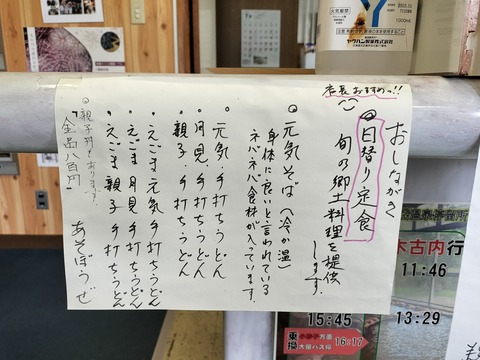 おしながき
店長おすすめっ!!
◎日替り定食
旬の郷土料理を提供
します。
◎元気そば(冷か温)
身体に良いと言われている
ネバネバ食材が入っています。
・元気 手打ちうどん
・月見 手打ちうどん
・親子 手打ちうどん
・えごま元気 手打ちうどん
・えごま月見 手打ちうどん
・えごま親子 手打ちうどん
全品八百円
あそぼうぜ
ヤウハン製薬株式会社
1000mL
木古内行
11:46
15:45
13:29
16:17